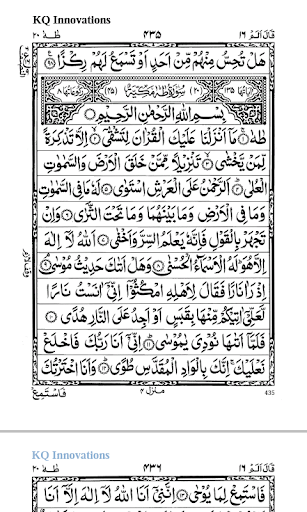 KQ Innovations
قَالَ اَلَمْ ١٦ ٤٣٥ طٰهٰ ٢٠
هَلْ تُحِسُّ مِنْهُمْ مِّنْ اَحَدٍ اَوْ تَسْمَعُ لَهُمْ رِكْزًا ۝٩٨
اٰيَاتُهَا ١٣٥ (٢٠) سُوْرَةُ طٰهٰ مَكِّيَّةٌ (٤٥) رُكُوْعَاتُهَا ٨
بِسْمِ اللّٰهِ الرَّحْمٰنِ الرَّحِيْمِ
طٰهٰ ۝١ مَآ اَنْزَلْنَا عَلَيْكَ الْقُرْاٰنَ لِتَشْقٰٓى ۝٢ اِلَّا تَذْكِرَةً
لِّمَنْ يَّخْشٰى ۝٣ تَنْزِيْلًا مِّمَّنْ خَلَقَ الْاَرْضَ وَالسَّمٰوٰتِ
الْعُلٰى ۝٤ اَلرَّحْمٰنُ عَلَى الْعَرْشِ اسْتَوٰى ۝٥ لَهٗ مَا فِى السَّمٰوٰتِ
وَمَا فِى الْاَرْضِ وَمَا بَيْنَهُمَا وَمَا تَحْتَ الثَّرٰى ۝٦ وَاِنْ
تَجْهَرْ بِالْقَوْلِ فَاِنَّهٗ يَعْلَمُ السِّرَّ وَاَخْفٰى ۝٧ اَللّٰهُ لَآ اِلٰهَ
اِلَّا هُوَ لَهُ الْاَسْمَآءُ الْحُسْنٰى ۝٨ وَهَلْ اَتٰىكَ حَدِيْثُ مُوْسٰى ۝٩
اِذْ رَاٰ نَارًا فَقَالَ لِاَهْلِهِ امْكُثُوْٓا اِنِّىْٓ اٰنَسْتُ نَارًا
لَّعَلِّىْٓ اٰتِيْكُمْ مِّنْهَا بِقَبَسٍ اَوْ اَجِدُ عَلَى النَّارِ هُدًى ۝١٠
فَلَمَّآ اَتٰىهَا نُوْدِىَ يٰمُوْسٰى ۝١١ اِنِّىْٓ اَنَا رَبُّكَ فَاخْلَعْ
نَعْلَيْكَ اِنَّكَ بِالْوَادِ الْمُقَدَّسِ طُوًى ۝١٢ وَاَنَا اخْتَرْتُكَ
مَنْزِل ٤ فَاسْتَمِعْ
435
KQ Innovations
قَالَ اَلَمْ ١٦ ٤٣٦ طٰهٰ ٢٠
فَاسْتَمِعْ لِمَا يُوْحٰى ۝١٣ اِنَّنِىْٓ اَنَا اللّٰهُ لَآ اِلٰهَ اِلَّآ اَنَا